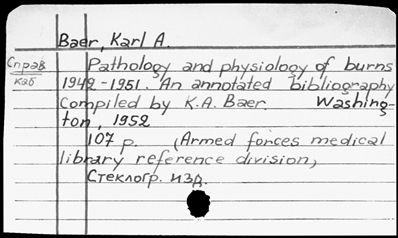 Baer, Karl A.
Справ
каб
Pathology and physiology of burns
1942-1951. An annotated bibliography
Compiled by K.A. Baer. Washing-
ton, 1952
107 p. (Armed forces medical
library reference division)
Стеклогр. изд.